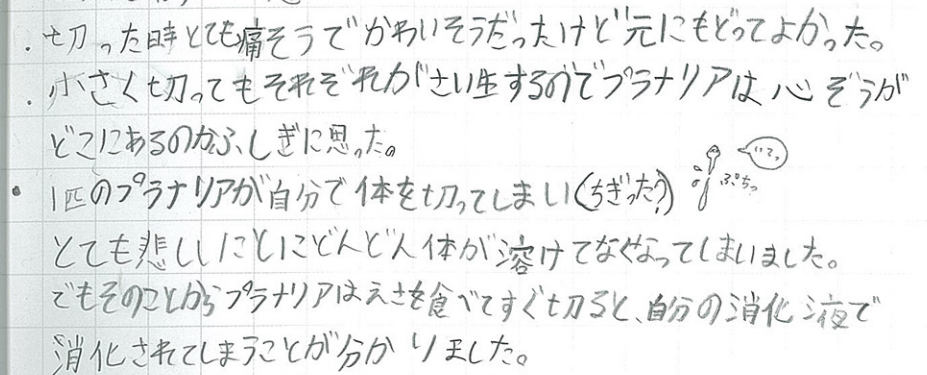 ・切った時とても痛そうでかわいそうだったけど元にもどってよかった。
・小さく切ってもそれぞれがさい生するのでプラナリアは心ぞうが
どこにあるのかふしぎに思った。
いてっ
ぷちっ
・1匹のプラナリアが自分で体を切ってしまい(ちぎった?)
とても悲しいことにどんどん体が溶けてなくなってしまいました。
でもそのことからプラナリアはえさを食べてすぐ切ると、自分の消化液で
消化されてしまうことが分かりました。